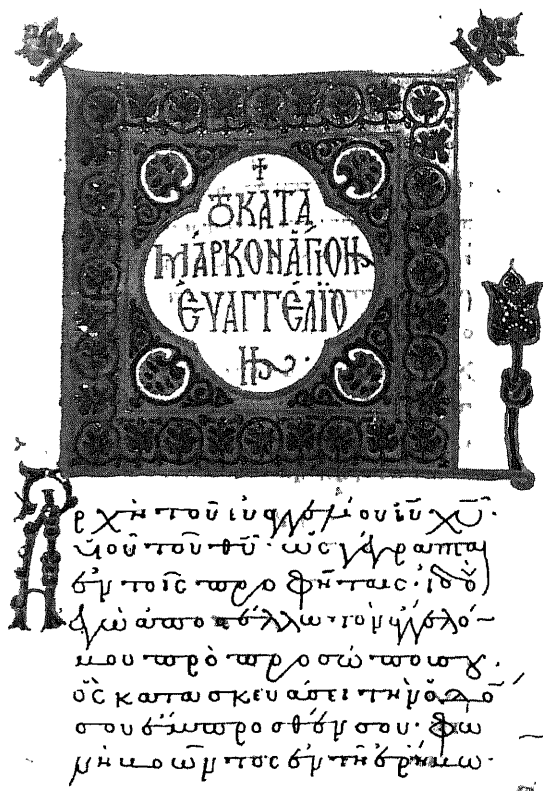 +
ΤΟ ΚΑΤΑ
ΜΆΡΚΟΝ ἍΓΙΟΝ
ἘΥΑΓΓΈΛΙΟ
Ν
Ἀρχὴ τοῦ εὐαγγελίου ιυ̅ χυ̅·
υἱοῦ τοῦ θυ̅· ὡς γέγραπται
ἐν τοῖς προφήταις· ἰδοὺ
ἐγὼ ἀποστέλλω τὸν ἄγγελό̅
μου πρὸ προσώπου σου·
ὃς κατασκευάσει τὴν ὁδὸ̅
σου ἔμπροσθέν σου· φω
νὴ βοῶντος ἐν τῇ ἐρήμω·